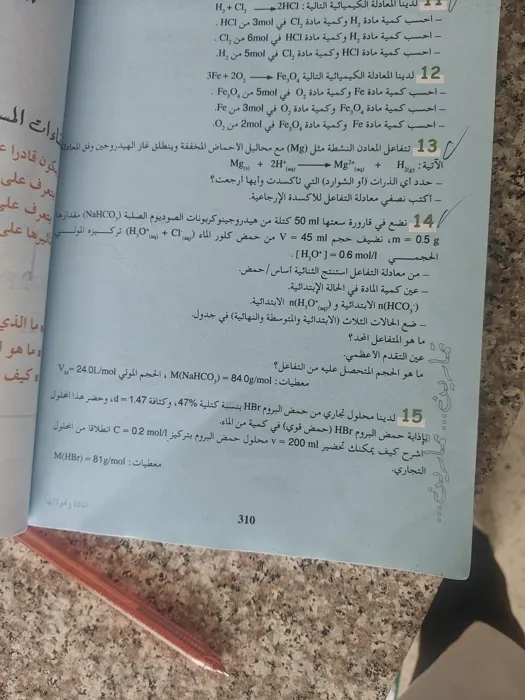 11 لدينا المعادلة الكيميائية التالية : H₂ + Cl₂ ⟶ 2HCl
– احسب كمية مادة H₂ وكمية مادة Cl₂ في 3mol من HCl .
– احسب كمية مادة H₂ وكمية مادة HCl في 6mol من Cl₂ .
– احسب كمية مادة HCl وكمية مادة Cl₂ في 5mol من H₂.
12 لدينا المعادلة الكيميائية التالية 3Fe + 2O₂ ⟶ Fe₃O₄
– احسب كمية مادة Fe وكمية مادة O₂ في 5mol من Fe₃O₄ .
– احسب كمية مادة Fe₃O₄ وكمية مادة O₂ في 3mol من Fe.
– احسب كمية مادة Fe وكمية مادة Fe₃O₄ في 2mol من O₂.
13 تتفاعل المعادن النشطة مثل (Mg) مع محاليل الأحماض المخففة وينطلق غاز الهيدروجين وفق المعادلة
الآتية : Mg(s) + 2H⁺(aq) ⟶ Mg²⁺(aq) + H₂(g)
– حدد أي الذرات (أو الشوارد) التي تأكسدت وأيها أرجعت؟
– اكتب نصفي معادلة التفاعل للأكسدة الإرجاعية.
14 نضع في قارورة سعتها 50 ml كتلة من هيدروجينوكربونات الصوديوم الصلبة (NaHCO₃) مقدارها
m = 0.5 g، نضيف حجم V = 45 ml من حمض كلور الماء (H₃O⁺(aq) + Cl⁻(aq)) تركيزه المولي
الحجمي [H₃O⁺] = 0.6 mol/l .
– من معادلة التفاعل استنتج الثنائية أساس/حمض.
– عين كمية المادة في الحالة الإبتدائية.
n(HCO₃⁻) الابتدائية و n(H₃O⁺(aq)) الابتدائية.
– ضع الحالات الثلاث (الابتدائية والمتوسطة والنهائية) في جدول.
ما هو المتفاعل المحد؟
عين التقدم الأعظمي.
ما هو الحجم المتحصل عليه من التفاعل؟
معطيات : M(NaHCO₃) = 84.0g/mol ، الحجم المولي V_M = 24.0L/mol
15 لدينا محلول تجاري من حمض البروم HBr بنسبة كتلية 47%، وكثافة d = 1.47، وحضر هذا المحلول
بإذابة حمض البروم HBr (حمض قوي) في كمية من الماء.
اشرح كيف يمكنك تحضير v = 200 ml محلول حمض البروم بتركيز C = 0.2 mol/l انطلاقا من المحلول
التجاري.
معطيات : M(HBr) = 81g/mol
المادة وتحولاتها
310
تمارين... تمارين...
ما الذي
ما هو ا
كيف